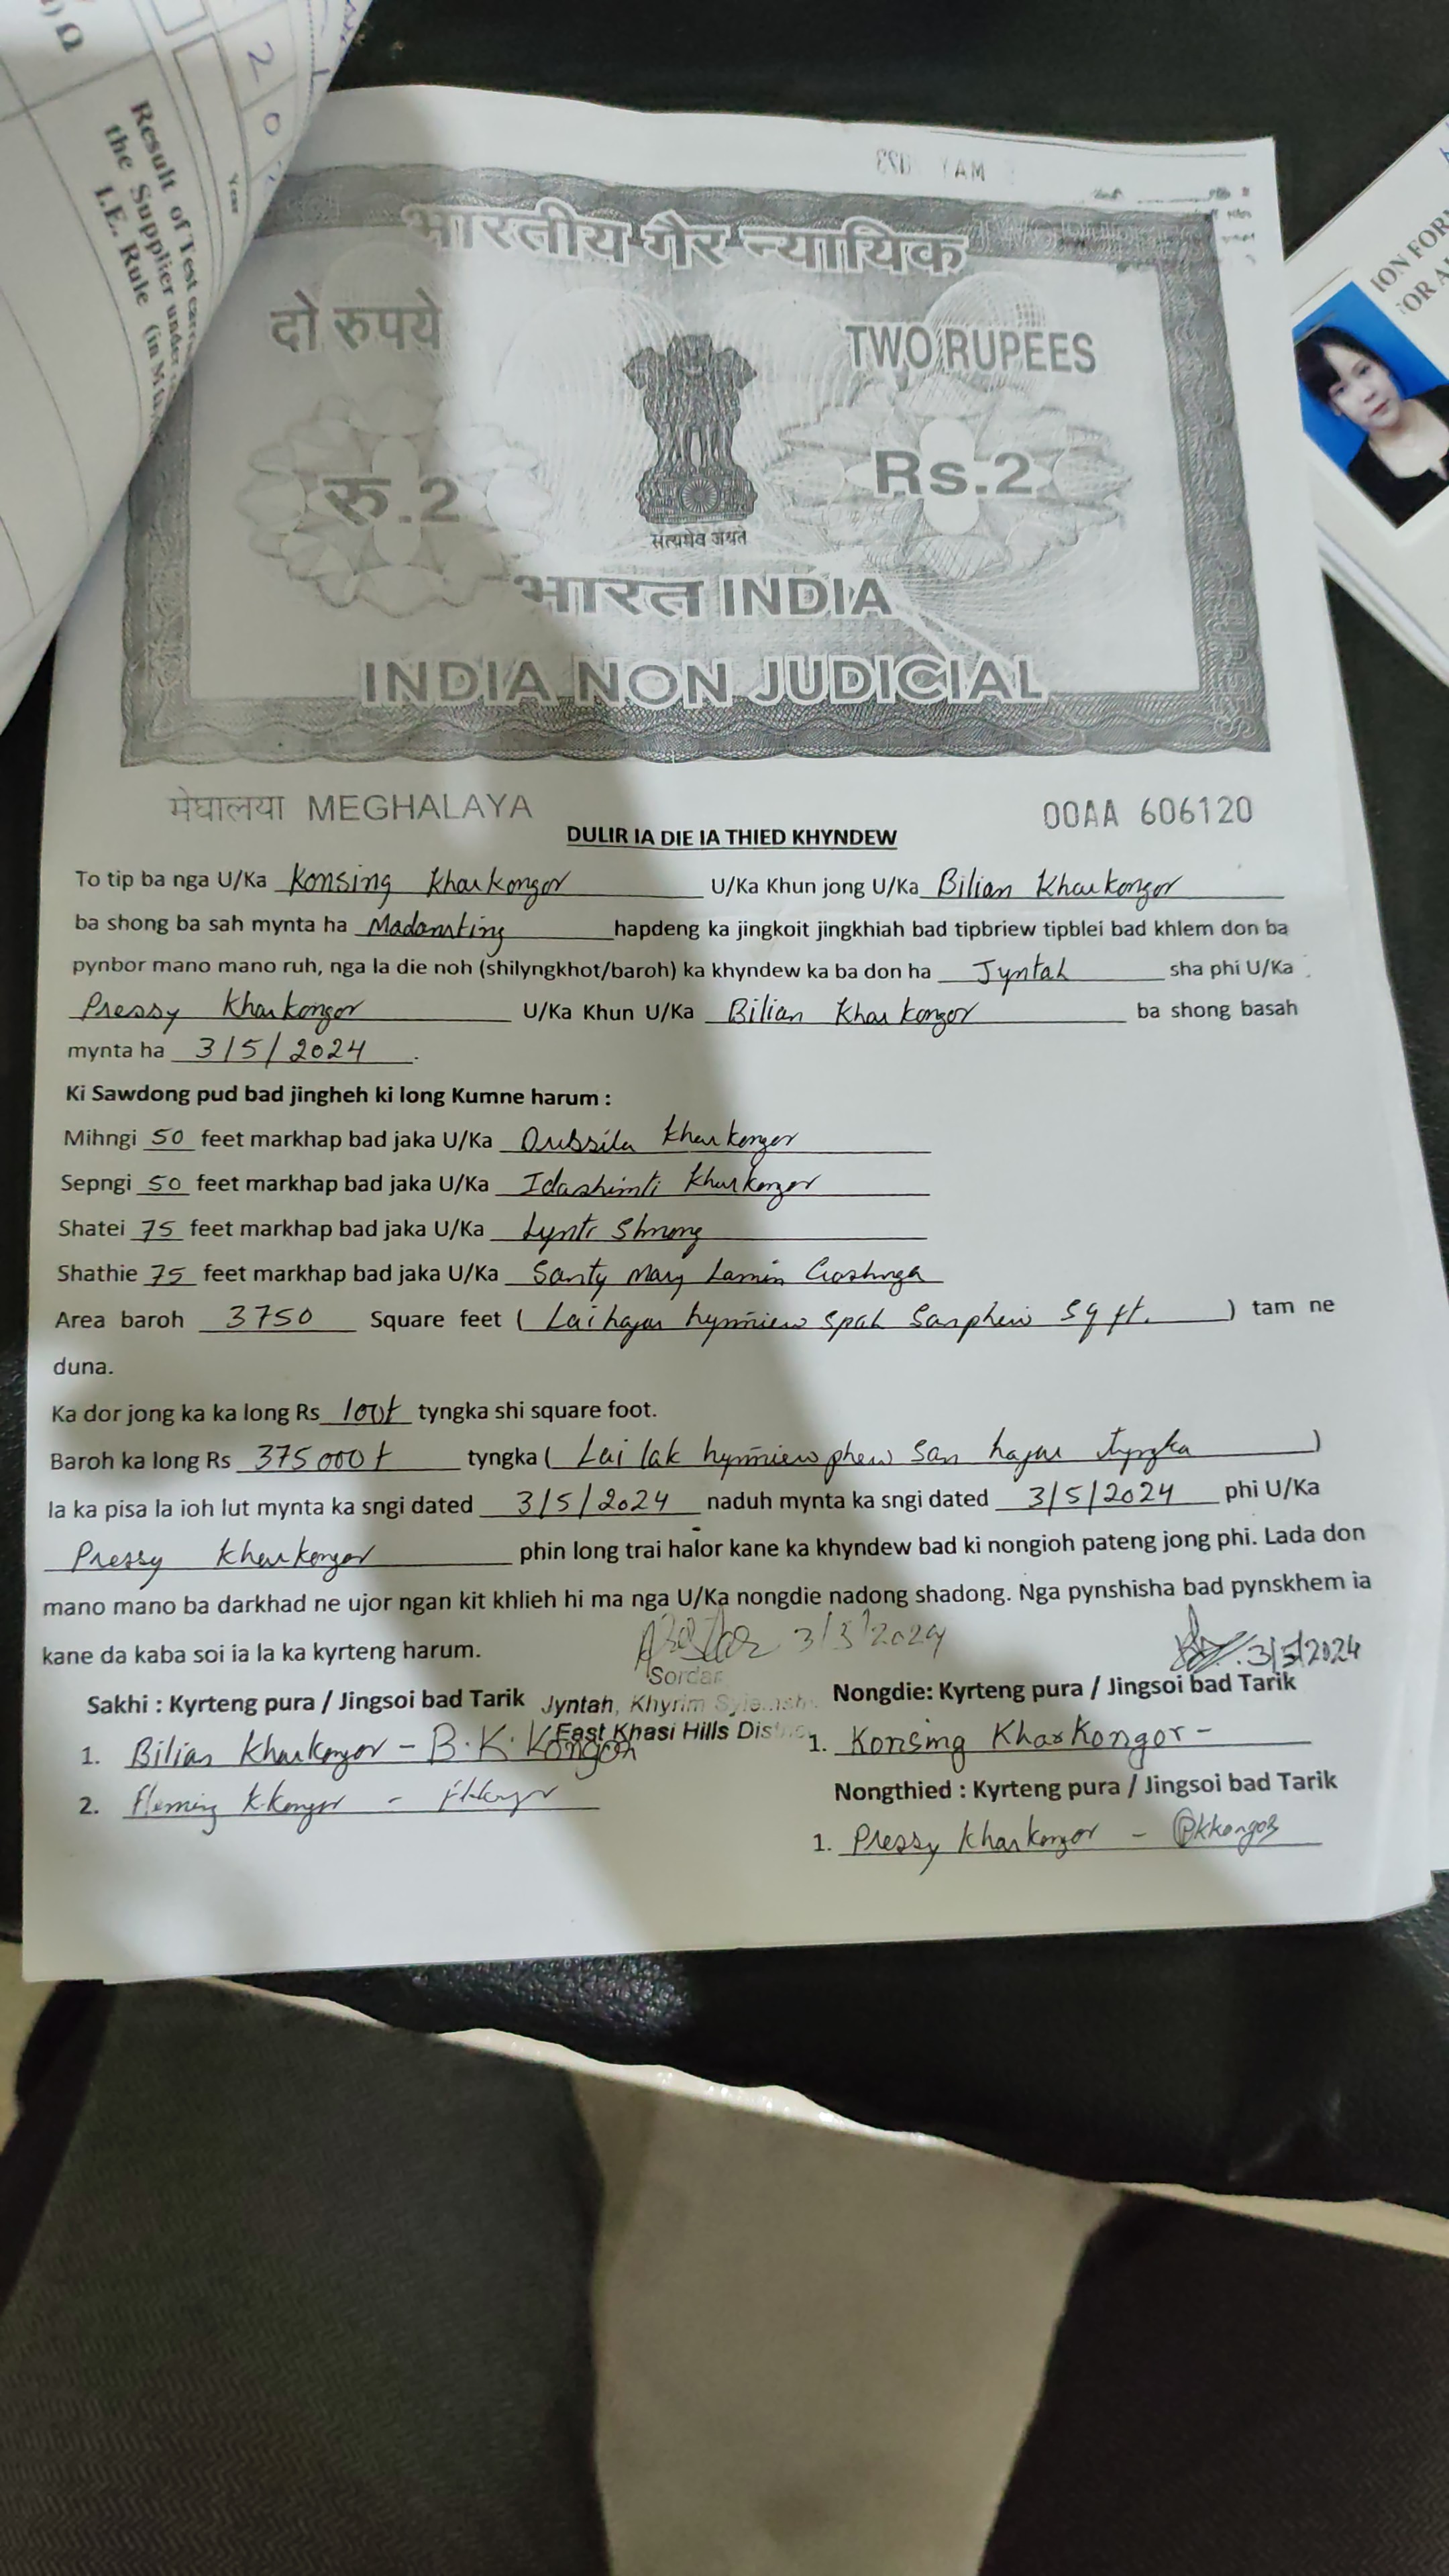 Ω
2
0
Year
Result of Test
the Supplier under
I.E. Rule (in M
MAY
भारतीय गैर न्यायिक
दो रुपये
TWO RUPEES
रु.2
Rs.2
सत्यमेव जयते
भारत INDIA
INDIA NON JUDICIAL
मेघालया MEGHALAYA
00AA 606120
DULIR IA DIE IA THIED KHYNDEW
To tip ba nga U/Ka Konsing Kharkongor U/Ka Khun jong U/Ka Bilian Kharkongor
ba shong ba sah mynta ha Madanrting hapdeng ka jingkoit jingkhiah bad tipbriew tipblei bad khlem don ba
pynbor mano mano ruh, nga la die noh (shilyngkhot/baroh) ka khyndew ka ba don ha Jyntah sha phi U/Ka
Pressy Kharkongor U/Ka Khun U/Ka Bilian Kharkongor ba shong basah
mynta ha 3/5/2024.
Ki Sawdong pud bad jingheh ki long Kumne harum :
Mihngi 50 feet markhap bad jaka U/Ka Kharkongor
Sepngi 50 feet markhap bad jaka U/Ka Idashimti Kharkongor
Shatei 75 feet markhap bad jaka U/Ka Lynti Shnong
Shathie 75 feet markhap bad jaka U/Ka Santy Mary Lamin
Area baroh 3750 Square feet ( Lai hajar hynñiew spah sanphew sq ft. ) tam ne
duna.
Ka dor jong ka ka long Rs 100/- tyngka shi square foot.
Baroh ka long Rs 375000/- tyngka ( Lai lak hynñiew phew san hajar tyngka )
Ia ka pisa la ioh lut mynta ka sngi dated 3/5/2024 naduh mynta ka sngi dated 3/5/2024 phi U/Ka
Pressy Kharkongor phin long trai halor kane ka khyndew bad ki nongioh pateng jong phi. Lada don
mano mano ba darkhad ne ujor ngan kit khlieh hi ma nga U/Ka nongdie nadong shadong. Nga pynshisha bad pynskhem ia
kane da kaba soi ia la ka kyrteng harum.
3/5/2024
3/5/2024
Sordar
Jyntah, Khyrim
East Khasi Hills
Sakhi : Kyrteng pura / Jingsoi bad Tarik
1. Bilian Kharkongor - B.K.Kongor
2. Fleming K.Kongor -
Nongdie: Kyrteng pura / Jingsoi bad Tarik
1. Konsing Kharkongor -
Nongthied : Kyrteng pura / Jingsoi bad Tarik
1. Pressy Kharkongor - Pkkongor
ION FOR